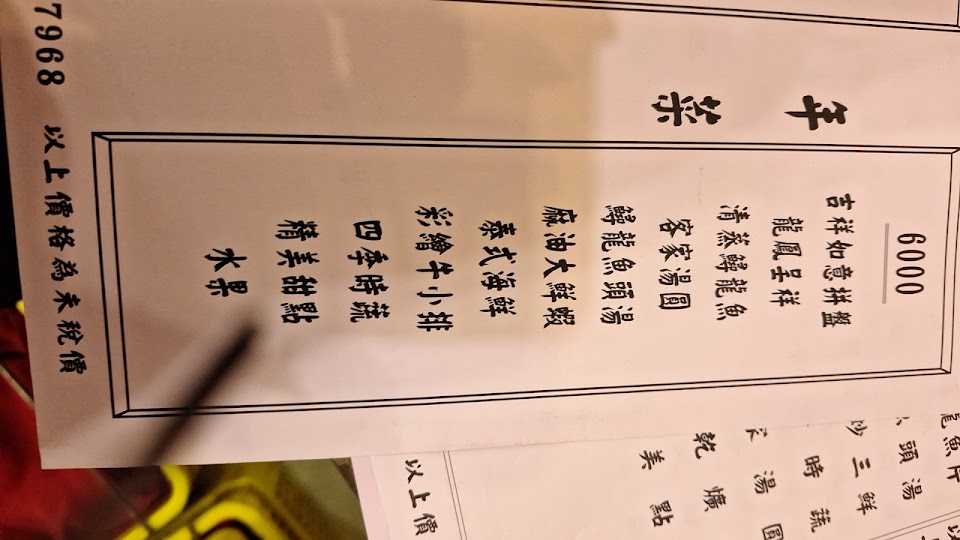 年菜
6000
吉祥如意拼盤
龍鳳呈祥
清蒸鱘龍魚
客家湯圓
鱘龍魚頭湯
麻油大鮮蝦
泰式海鮮
彩繪牛小排
四季時蔬
精美甜點
水果
7968 以上價格為未稅價
龍魚片
頭湯
炒三鮮
時蔬
湯圓
乾爌
美點
以上價